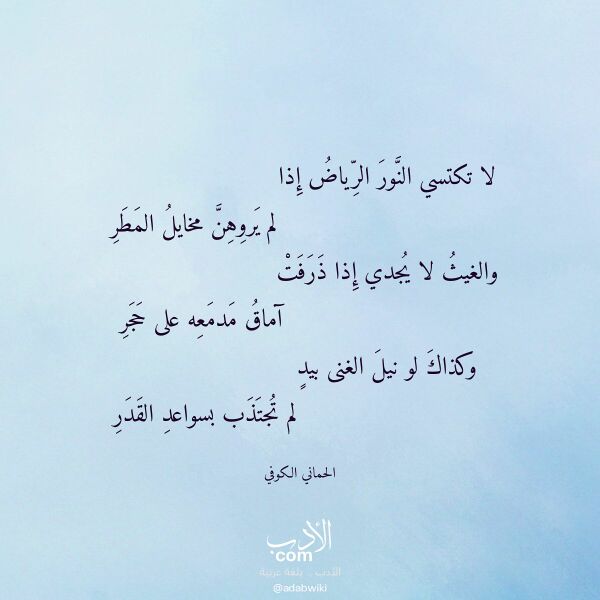 لا تكتسي النَّورَ الرِّياضُ إِذا
لم يَروِهِنَّ مخايلُ المَطَرِ
والغيثُ لا يُجدي إِذا ذَرَفَتْ
آماقُ مَدمَعِه على حَجَرِ
وكذاكَ لو نيلَ الغنى بيدٍ
لم تُجتَذَب بسواعدِ القَدَرِ
الحماني الكوفي
الأدب
com
الأدب .. بلغة عربية
@adabwiki